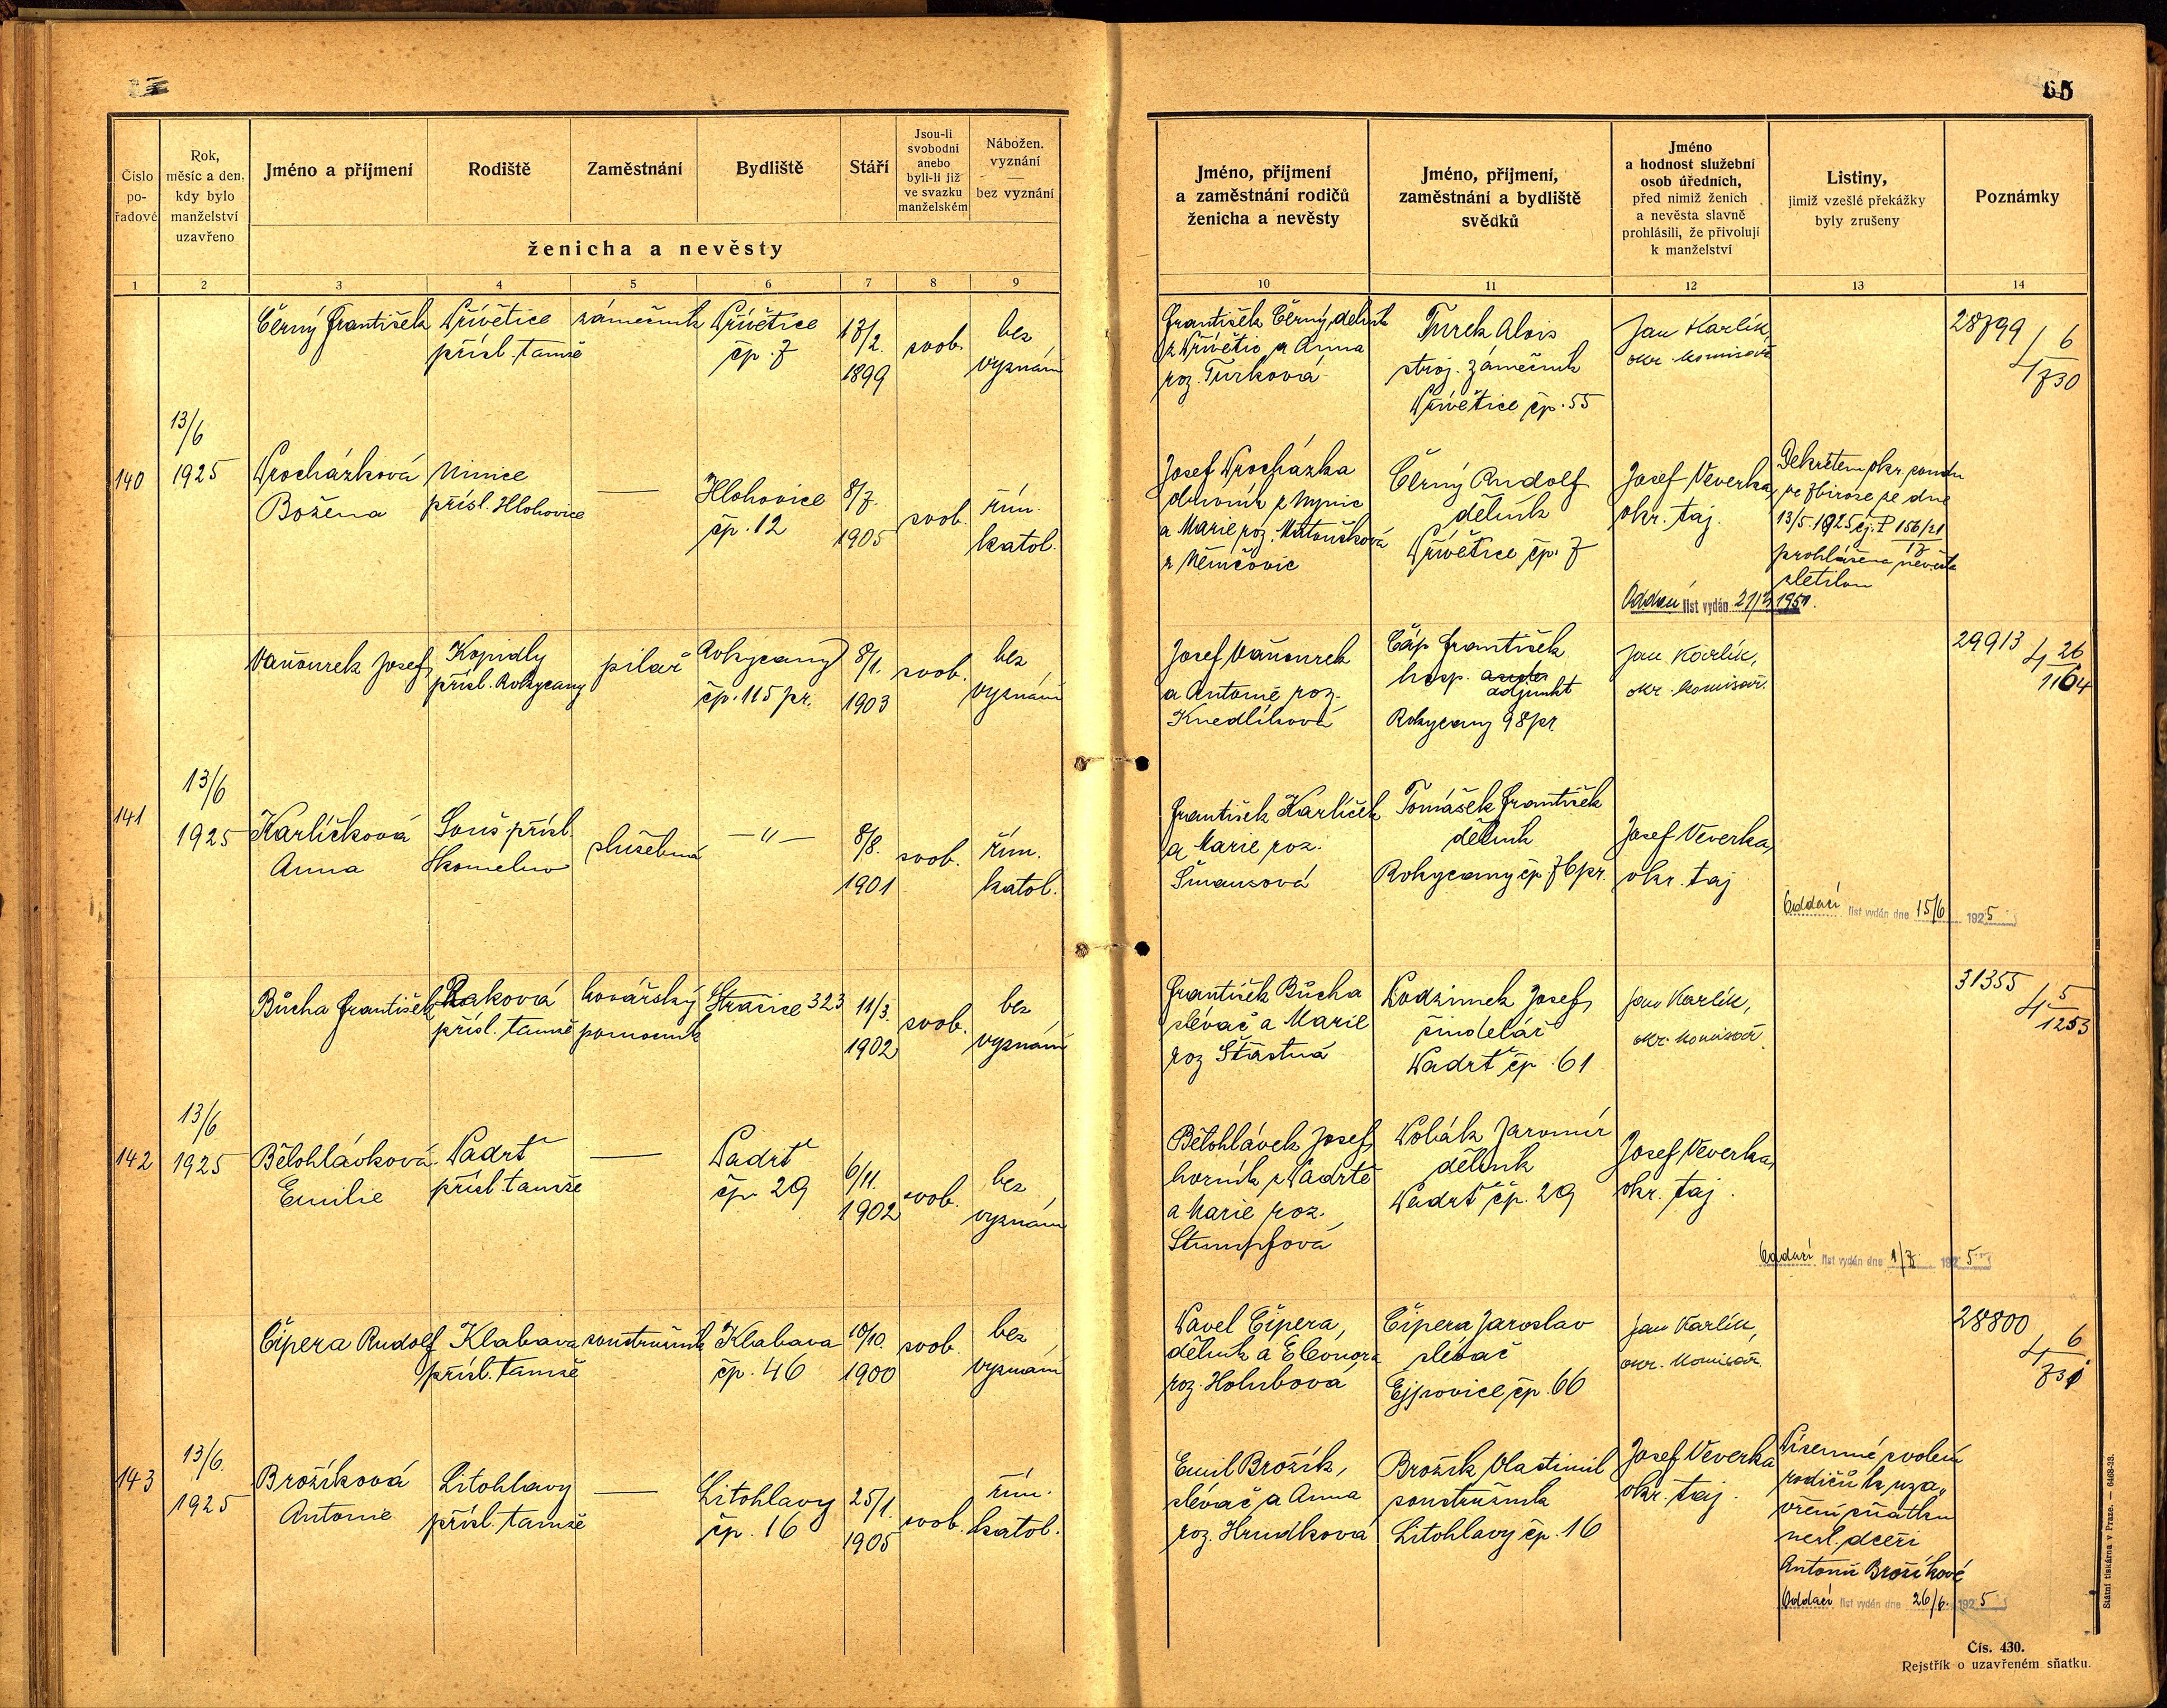 65
Číslo po- řadové
Rok, měsíc a den, kdy bylo manželství uzavřeno
Jméno a příjmení
Rodiště
Zaměstnání
Bydliště
Stáří
Jsou-li svobodni anebo byli-li již ve svazku manželském
Nábožen. vyznání — bez vyznání
ženicha a nevěsty
1 2 3 4 5 6 7 8 9
Jméno, příjmení a zaměstnání rodičů ženicha a nevěsty
Jméno, příjmení, zaměstnání a bydliště svědků
Jméno a hodnost služební osob úředních, před nimiž ženich a nevěsta slavně prohlásili, že přivolují k manželství
Listiny, jimiž vzešlé překážky byly zrušeny
Poznámky
10 11 12 13 14
140
13/6
1925
Černý František
Přívětice
přísl. tamže
zámečník
Přívětice
čp. 7
17/2.
1899
svob.
bez
vyznání
František Černý, dělník
z Přívětic a Anna
roz. Turková
Turek Alois
stroj. zámečník
Přívětice čp. 55
Jan Karlík,
okr. komisař
28799
4 6/730
Procházková
Božena
přísl. Hlohovice
Hlohovice
čp. 12
8/7.
1905
svob.
řím.
katol.
Josef Procházka
a Marie roz. Matoušková
z Němčovic
Černý Rudolf
dělník
Přívětice čp. 7
Josef Veverka,
okr. taj.
Dekretem okr. soudu
ve Zbiroze ze dne
13/5. 1925 čj. P 156/21
17
prohlášena nevěsta
zletilou
Oddací list vydán 1951.
141
13/6
1925
Vaňourek Josef
Kopidly
přísl. Rokycany
pilař
Rokycany
čp. 115 pr.
8/1.
1903
svob.
bez
vyznání
Josef Vaňourek
a Antonie roz.
Knedlíková
Čáp František
hosp.
adjunkt
Rokycany 98 pr.
Jan Karlík,
okr. komisař.
29913
4 26/1164
Karlíčková
Anna
Souš přísl.
služebná
— " —
8/8.
1901
svob.
řím.
katol.
František Karlíček
a Marie roz.
Šmausová
Tomášek František
dělník
Rokycany čp 76 pr.
Josef Veverka,
okr. taj
Oddací list vydán dne 15/6 1925
142
13/6
1925
Bůcha František
Raková
přísl. tamže
kovářský
pomocník
Strašice 323
11/3.
1902
svob.
bez
vyznání
František Bůcha
slévač a Marie
roz Šťastná
Podzimek Josef,
šindelář
Padrť čp. 61
Jan Karlík,
okr. komisař.
31355
4 5/1253
Bělohlávková
Emilie
Padrť
přísl. tamže
Padrť
čp. 29
6/11.
1902
svob.
bez
vyznání
Bělohlávek Josef,
horník z Padrtě
a Marie roz.
Stumpfová
Polák Jaromír
dělník
Padrť čp. 29
Josef Veverka,
okr. taj.
Oddací list vydán dne 1/7 1925
143
13/6.
1925
Čipera Rudolf
Klabava
přísl. tamže
soustružník
Klabava
čp. 46
10/10.
1900
svob.
bez
vyznání
Pavel Čipera,
dělník a Eleonora
roz. Holubová
Čipera Jaroslav
slévač
Ejpovice čp. 66
Jan Karlík,
okr. komisař.
28800
4 6/731
Brožíková
Antonie
Litohlavy
přísl. tamže
Litohlavy
čp. 16
25/1.
1905
svob.
řím.
katol.
Emil Brožík,
slévač a Anna
roz. Hrudková
Brožík Vlastimil
soustružník
Litohlavy čp. 16
Josef Veverka
okr. taj.
Písemné svolení
rodičů k uza-
vření sňatku
nezl. dceři
Antonii Brožíkové
Oddací list vydán dne 26/6. 1925
Státní tiskárna v Praze. — 6468-23.
Čís. 430.
Rejstřík o uzavřeném sňatku.